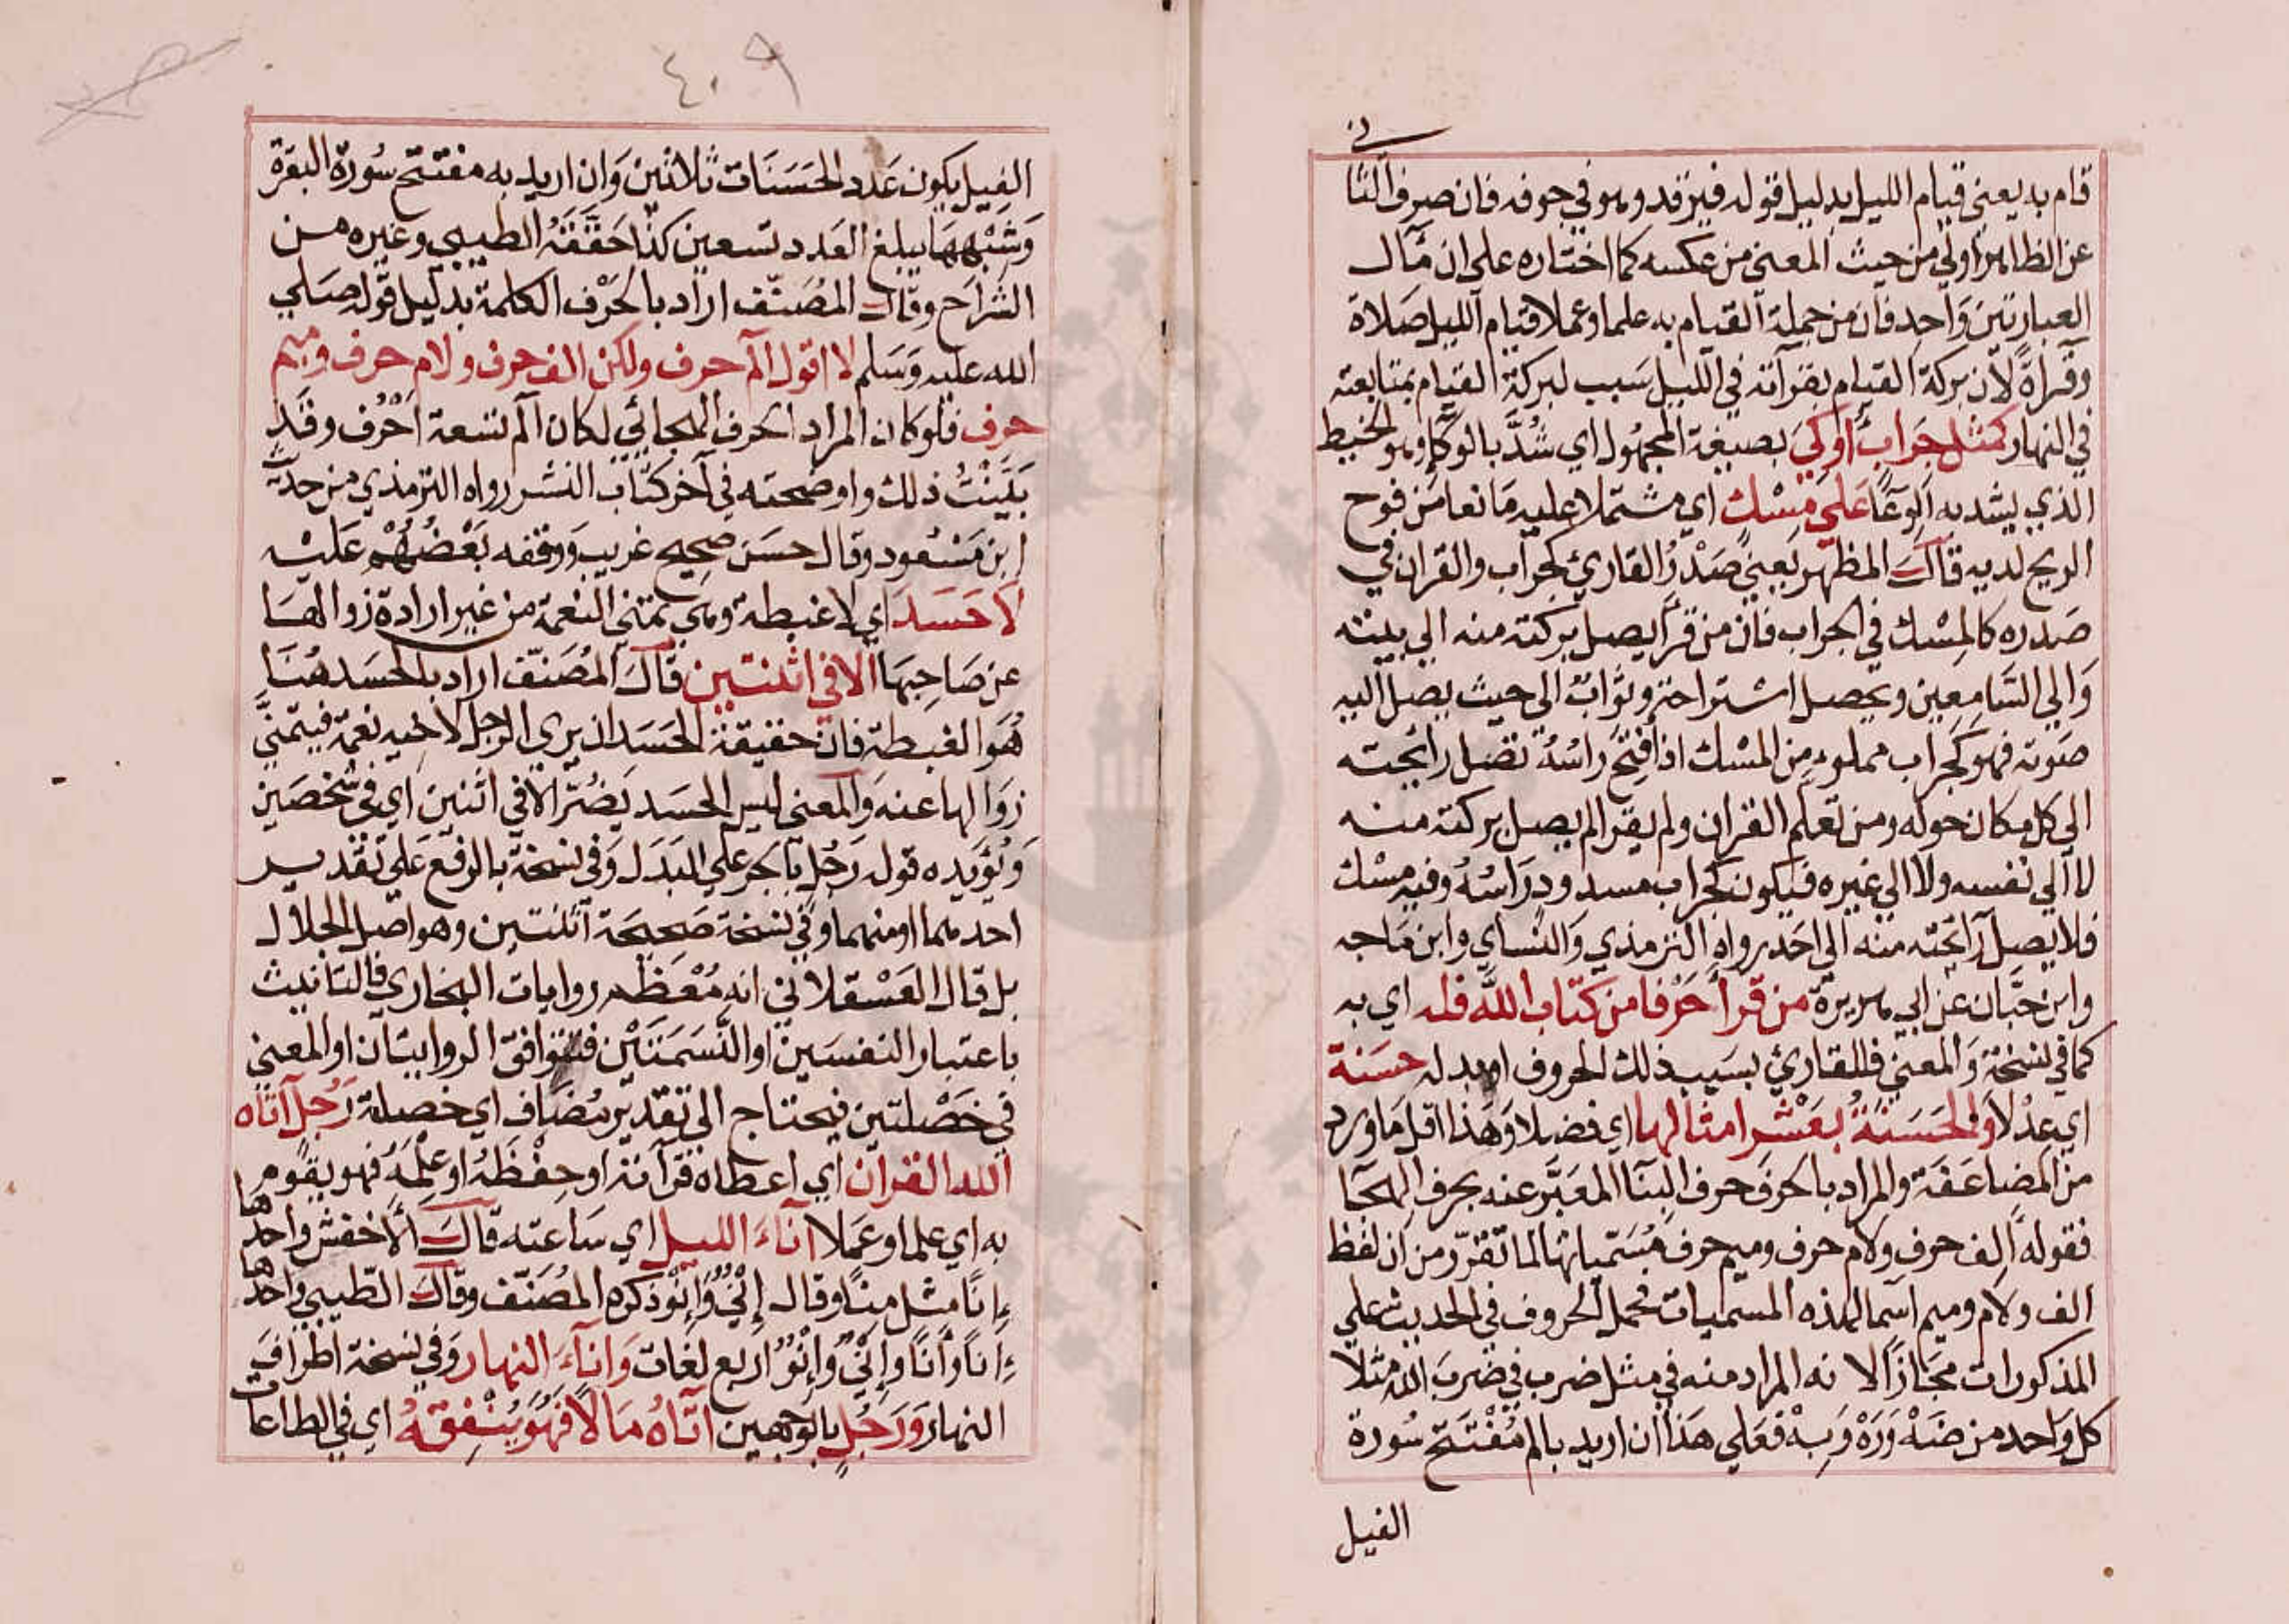 قام به يعني قيام الليل بدليل قوله فيرقد وهو في جوفه فان صرف الثا
عن الظاهر اولي من حيث المعني من عكسه كما اختاره علي ان مآل
العبارتين واحد فان من جملة القيام به علما وعملا قيام الليل صلاة
وقراة لان بركة القيام بقرآته في الليل سبب لبركة القيام بمتابعته
في النهار كمثل جراب أوكي بصيغة المجهول اي شد بالوكاء وهو الخيط
الذي يشد به الوعا علي مسك اي مشتملا عليه مانعا من فوح
الريح لديه قال المظهر يعني صدر القاري كجراب والقران في
صدره كالمسك في الجراب فان من قرأ يصل بركته منه الي بيته
والي السامعين ويحصل استراحة وثواب الي حيث يصل اليه
صوته فهو كجراب مملوء من المسك اذا فتح راسه تصل رائحته
الي كل مكان حوله ومن تعلم القران ولم يقرا لم يصل بركته منه
لا الي نفسه ولا الي غيره فيكون كجراب مسدود راسه وفيه مسك
فلا يصل رائحته منه الي احد رواه الترمذي والنساي وابن ماجه
وابن حبان عن ابي هريرة من قرأ حرفا من كتاب الله فله اي به
كما في نسخة والمعني فللقاري بسبب ذلك الحروف او بدله حسنة
اي عدلا والحسنة بعشر امثالها اي فضلا وهذا اقل ما ورد
من المضاعفة والمراد بالحرف حرف البنا المعبر عنه بحرف الهجا
فقوله الف حرف ولام حرف وميم حرف مسمياتها لما تقرر من ان لفظ
الف ولام وميم اسما لهذه المسميات فحمل الحروف في الحديث علي
المذكورات مجازا لا نه المراد منه في مثل ضرب في ضرب الله مثلا
كل واحد من ضه وره وبه فعلي هذا ان اريد بالم مفتتح سورة
الفيل
٤٠٩
الفيل يكون عدد الحسنات ثلاثين وان اريد به مفتتح سورة البقرة
وشبهها يبلغ العدد تسعين كذا حققه الطيبي وغيره من
الشراح وقال المصنف اراد بالحرف الكلمة بدليل قوله صلي
الله عليه وسلم لا اقول الم حرف ولكن الف حرف ولام حرف وميم
حرف فلو كان المراد الحرف الهجائي لكان الم تسعة احرف وقد
بينت ذلك واوضحته في آخر كتاب النشر رواه الترمذي من حديث
ابن مسعود وقال حسن صحيح غريب ووقفه بعضهم عليه
لا حسد اي لا غبطة وهي تمني النعمة من غير ارادة زوالها
عن صاحبها الا في اثنتين قال المصنف اراد بالحسد هنا
هو الغبطة فان حقيقة الحسد ان يري الرجل لاخيه نعمة فيتمني
زوالها عنه والمعني ليس الحسد يضر الا في اثنين اي في شخصين
ويؤيده قوله رجل بالجر علي البدل وفي نسخة بالرفع علي تقدير
احدهما او منهما وفي نسخة صحيحة اثنتين وهو اصل الجلال
بل قال العسقلاني انه معظم روايات البخاري فالتانيث
باعتبار النفسين او النسمتين فتتوافق الروايتان او المعني
في خصلتين فيحتاج الي تقدير مضاف اي خصلة رجل آتاه
الله القران اي اعطاه قرآته او حفظه او علمه فهو يقوم
به اي علما او عملا آناء الليل اي ساعته قال الاخفش واحدها
إنا مثل معا وقال إني وإنو ذكره المصنف وقال الطيبي واحدها
إنا وأنا وإني وإنو اربع لغات وآناء النهار وفي نسخة اطراف
النهار ورجل بالوجهين اتاه مالا فهو ينفقه اي في الطاعات